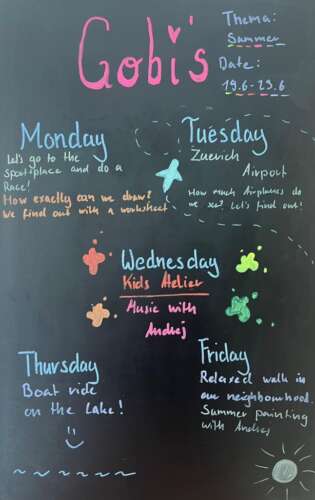 Gobi's
Thema:
Summer
Date:
19.6-23.6
Monday
Let's go to the
Sportplace and do a
Race!
How exactly can we draw?
We find out with a worksheet
Tuesday
Zuerich
Airport
How much Airplanes do
we see? Let's find out!
Wednesday
Kids Atelier
Music with
Andrej
Thursday
Boat ride
on the Lake!
Friday
Relaxed walk in
our neighbourhood.
Summer painting
with Andrej